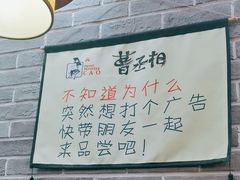 CAO
曹丞相
不知道为什么
突然想打个广告
快带朋友一起
来品尝吧！